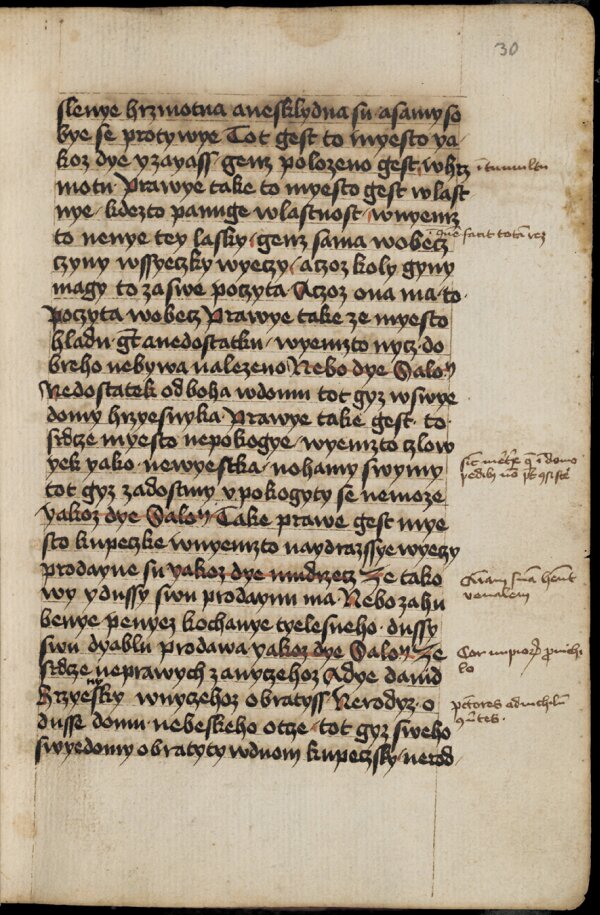 30
slenye hrzmotna anesklydna su · asamy so
bye se protywye Tot gest to myesto ya-
koz dye yzayass genz polozeno gest, whrz
motu · Prawye take to myesto gest wlast
nye · kdezto panuge wlastnost · wnyemz
to nenye tey lasky, genz sama wobecz
czyny wssyeczky wyeczy, aczoz koly gyny
magy to zaswe poczyta Aczoz ona ma · to ·
poczyta wobecz Prawye take ze myesto
hladu · gt anedostatku · wyemzto nycz · do
breho nebywa nalezeno Nebo dye Salon
Nedostatek od boha wdomu tot gyz wswye
domy hrzyesnyka · Prawye take gest · to ·
srdcze myesto nepokogye · wyemzto czlow
yek yako · newyestka · nohamy swymy
tot gyz zadostmy vpokogyty se nemoze
yakoz dye Salon Take prawe gest mye
sto kupeczke wnyemzto naydrazssye wyeczy
prodayne su yakoz dye mudrzecz Ze tako
wy ydussy swu prodaynu ma · Nebo zahu
benye penyez kochanye tyelesneho · dussy
swu dyablu prodawa yakoz dye Salon Ze
srdcze neprawych zanyczehoz Adye dauid
Hrzyesnyky wnyczehoz obratyss Nerodyz · o
dusse domu nebeskeho otcze · tot gyz sweho
swyedomy obratyty wduom kupeczsky · nerod-
in tumultu
que facit totam rez
venalem
Cor impiorum pro nichi
lo
peccatores ad nichilum